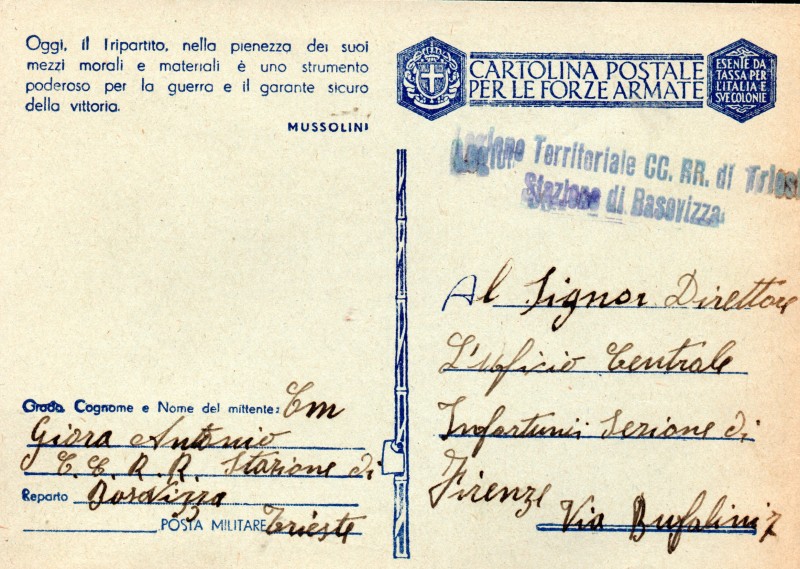 Oggi, il Tripartito, nella pienezza dei suoi
mezzi morali e materiali è uno strumento
poderoso per la guerra e il garante sicuro
della vittoria.
MUSSOLINI
CARTOLINA POSTALE
PER LE FORZE ARMATE
ESENTE DA
TASSA PER
L'ITALIA E
SVE COLONIE
Legione Territoriale CC. RR. di Triest
Stazione di Basovizza
Al Signor Direttore
L'Uficio Centrale
Infortunii Sezione di
Firenze
Via Bufalini 7
Grado, Cognome e Nome del mittente:
Giora Antonio
C. C. R. R. Stazione di
Reparto Basovizza
POSTA MILITARE Trieste